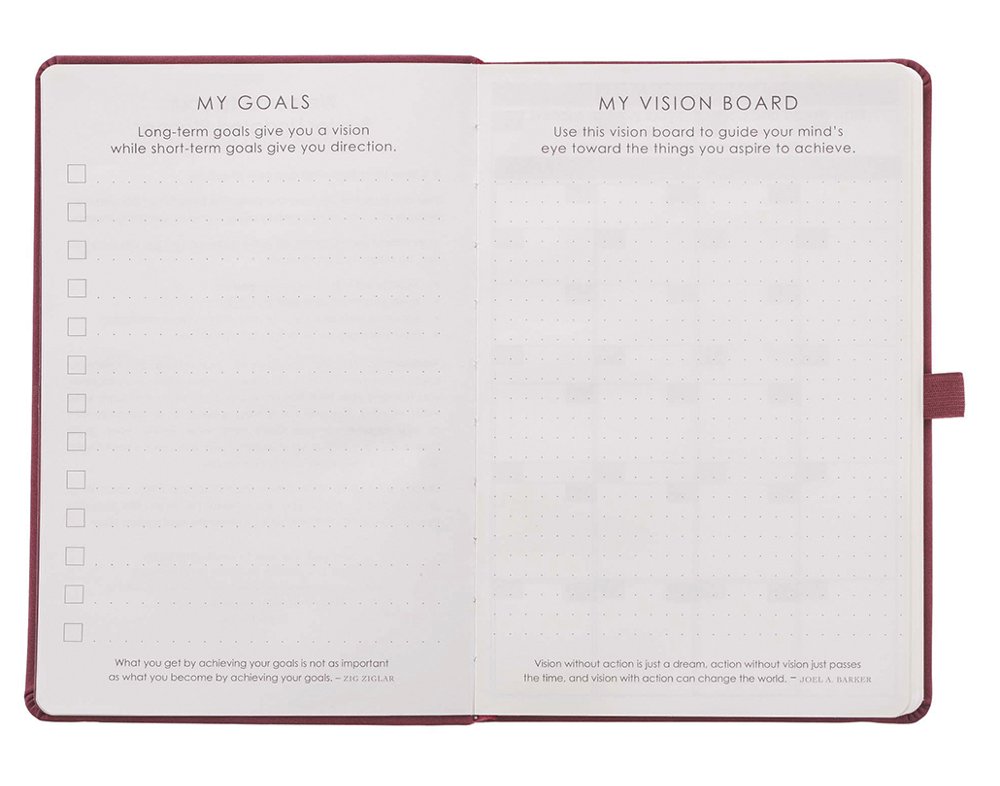 MY GOALS
Long-term goals give you a vision
while short-term goals give you direction.
What you get by achieving your goals is not as important
as what you become by achieving your goals. – ZIG ZIGLAR
MY VISION BOARD
Use this vision board to guide your mind's
eye toward the things you aspire to achieve.
Vision without action is just a dream, action without vision just passes
the time, and vision with action can change the world. – JOEL A. BARKER